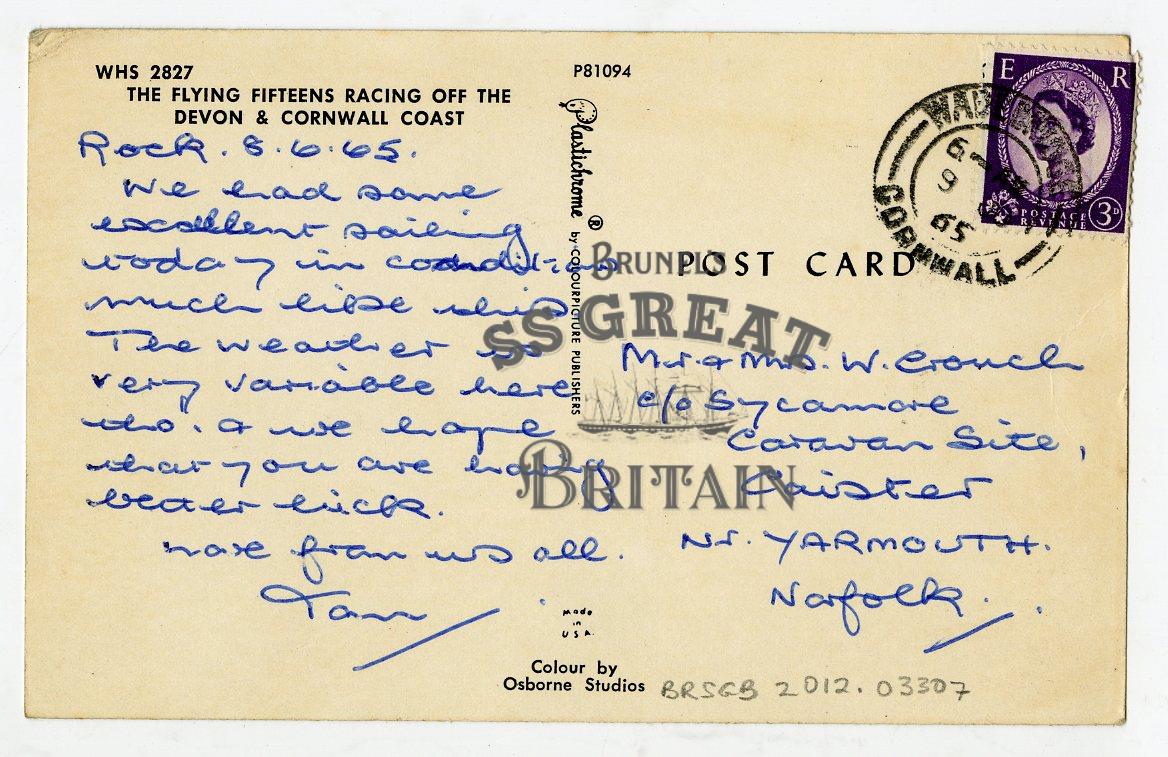 WHS 2827
THE FLYING FIFTEENS RACING OFF THE
DEVON & CORNWALL COAST
Rock. 8.6.65.
We had some
excellent sailing
today in conditions
much like this
The weather is
very variable here
tho'. & we hope
that you are having
better luck.
Love from us all.
Tom
P81094
Plastichrome ® by COLOURPICTURE PUBLISHERS
Made
in
U.S.A.
Colour by
Osborne Studios
BRSGB 2012.03307
POST CARD
Mr. & Mrs. W. Crouch
c/o Sycamore
Caravan Site,
Caister
Nr. YARMOUTH.
Norfolk.
E R
POSTAGE
REVENUE
3D
CORNWALL
9
65
BRUNEL'S
SS GREAT
BRITAIN